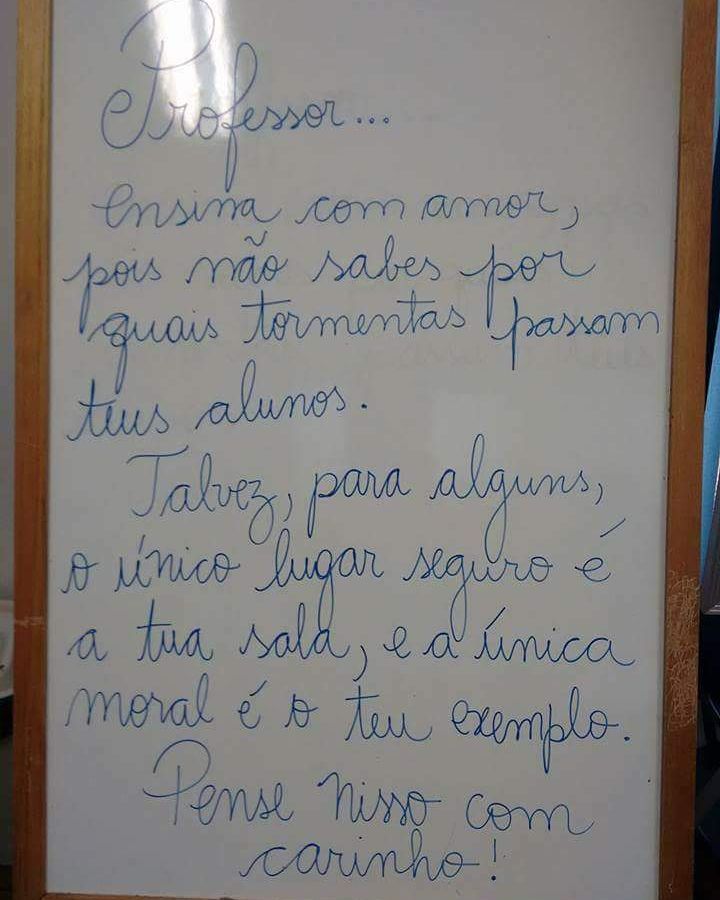 Professor...
ensina com amor,
pois não sabes por
quais tormentas passam
teus alunos.
Talvez, para alguns,
o único lugar seguro é
a tua sala, e a única
moral é o teu exemplo.
Pense nisso com
carinho!